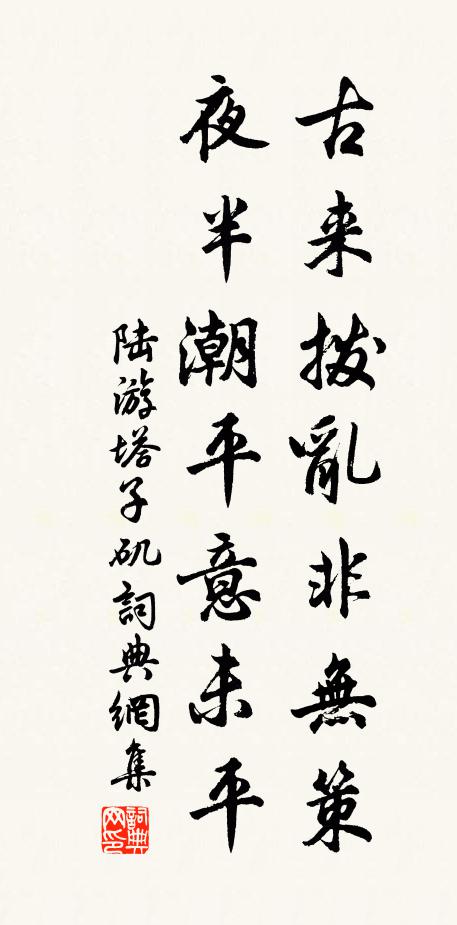 古来拨亂非無策
夜半潮平意未平
陆游塔子矶詞典網集
詞典网印